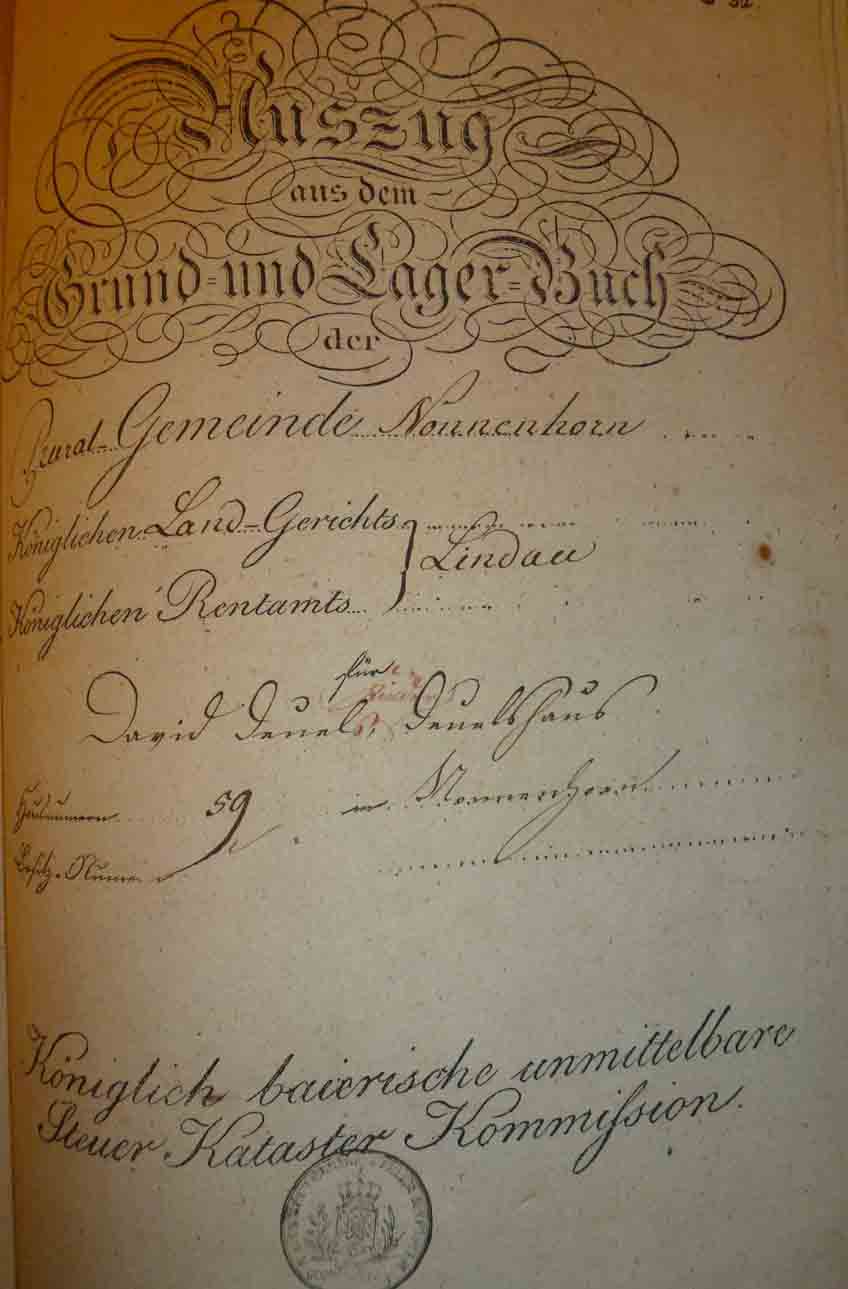 Auszug
aus dem
Grund- und Lager-Buch
der
Rural-Gemeinde Nonnenhorn
Königlichen Land-Gerichts
Lindau
Königlichen Rentamts
für
David Deuel, Deuelshaus
Hausnummern 59 in Nonnenhorn
Besitz-Numer
Königlich baierische unmittelbare
Steuer Kataster Kommißion.